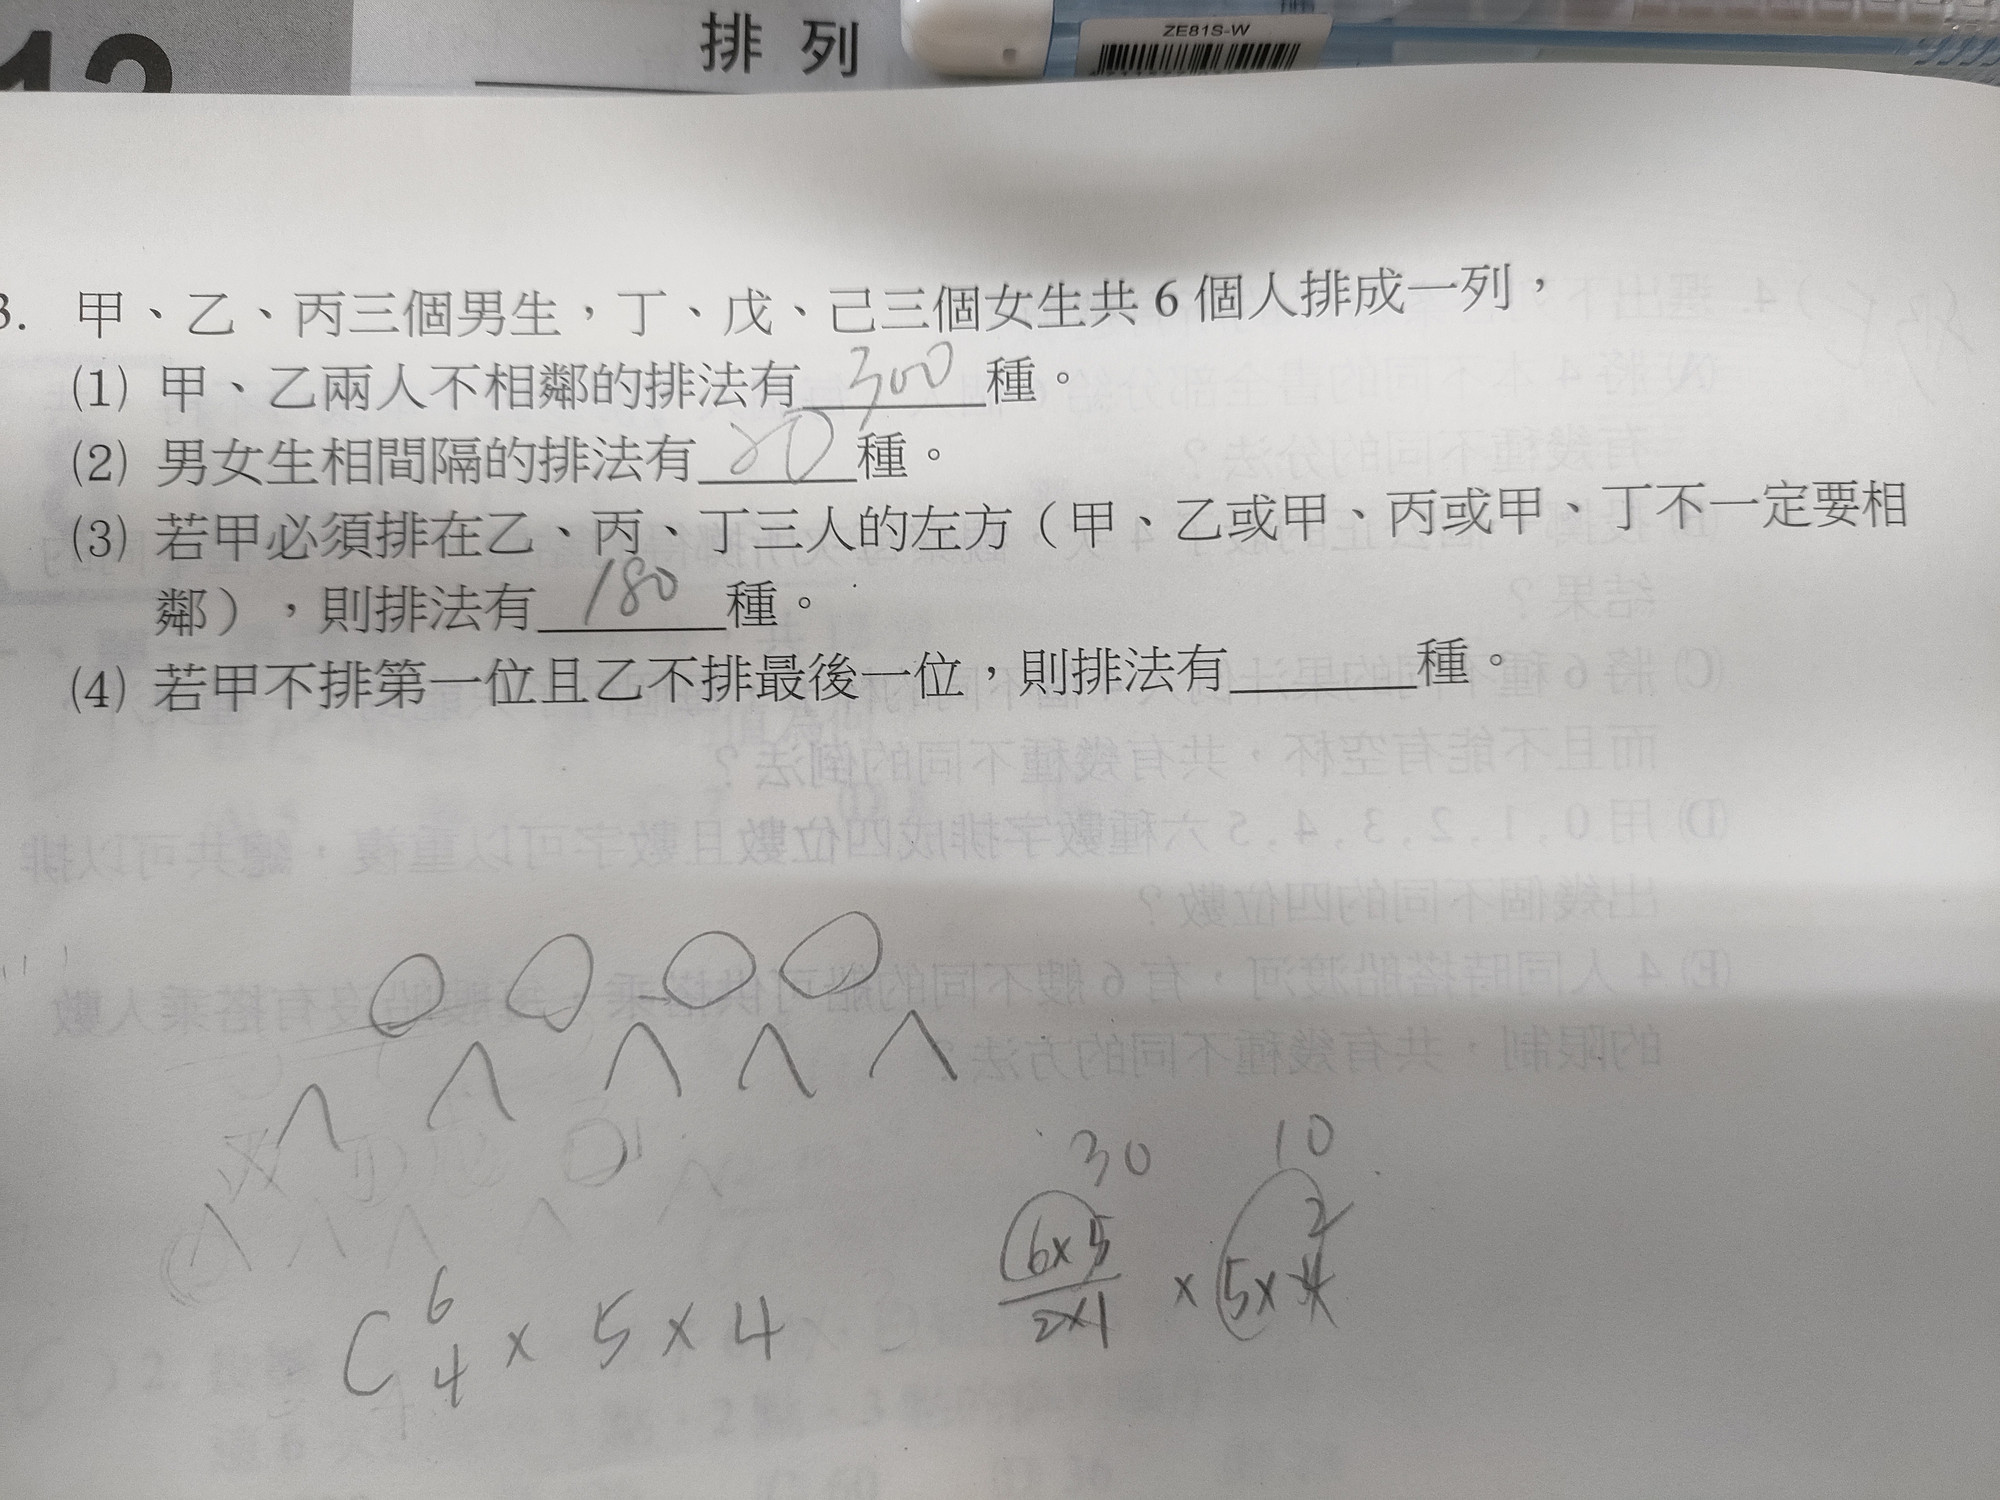 12 排列
ZE81S-W
3. 甲、乙、丙三個男生，丁、戊、己三個女生共 6 個人排成一列，
(1) 甲、乙兩人不相鄰的排法有 300 種。
(2) 男女生相間隔的排法有 20 種。
(3) 若甲必須排在乙、丙、丁三人的左方（甲、乙或甲、丙或甲、丁不一定要相
鄰），則排法有 180 種。
(4) 若甲不排第一位且乙不排最後一位，則排法有______種。
30 10
2
6×5 / 2×1 × 5×4
C 6 4 × 5 × 4